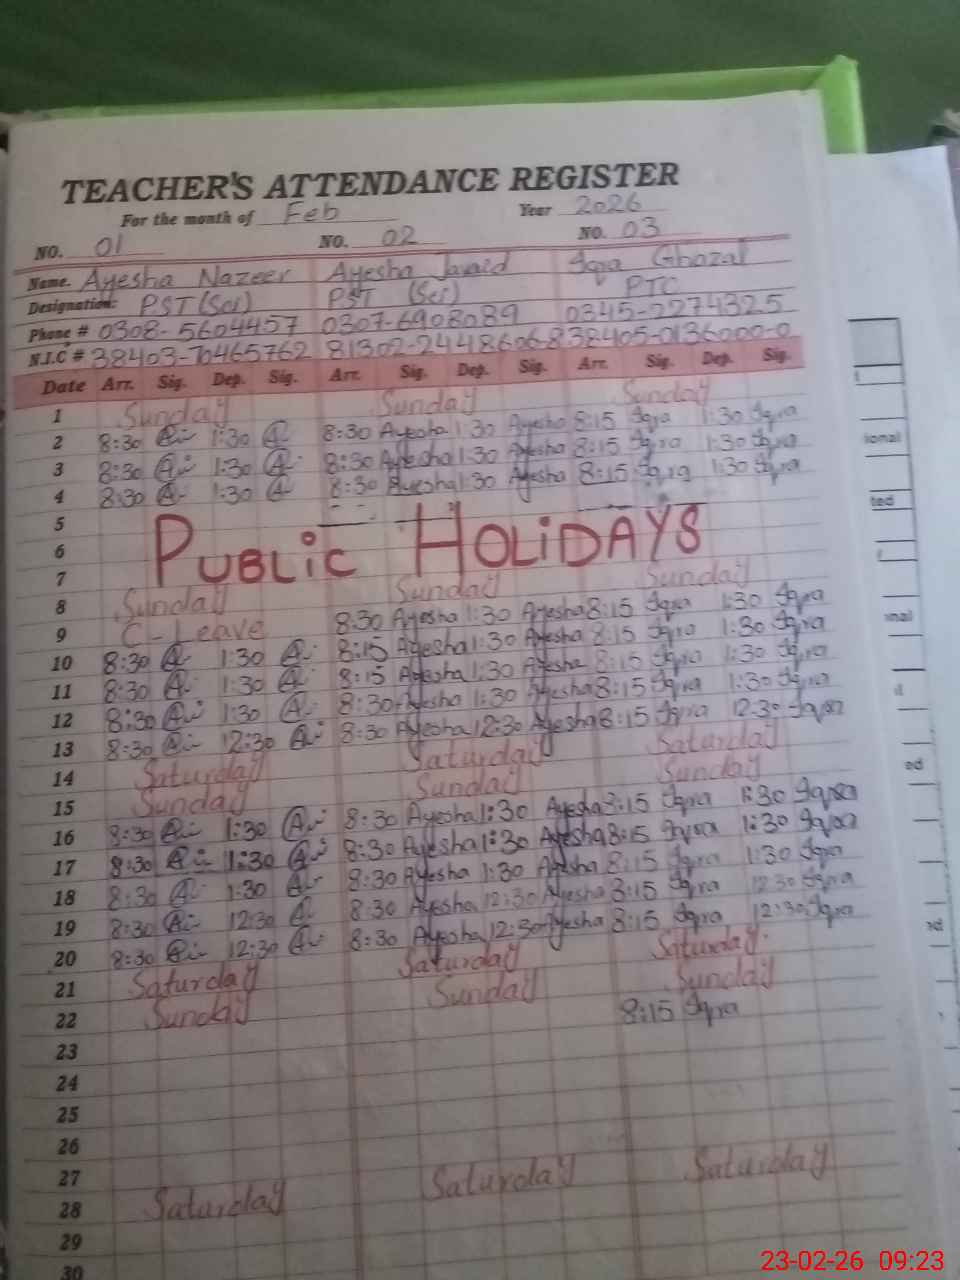 TEACHER'S ATTENDANCE REGISTER
For the month of Feb Year 2026
NO. 01 NO. 02 NO. 03
Name. Ayesha Nazeer Ayesha Javaid Iqra Ghazal
Designation: PST (Sci) PST (Sci) PTC
Phone # 0308-5604457 0307-6908089 0345-2274325
N.I.C # 38403-70465762 81302-2448606-8 38405-0136000-0
Date Arr. Sig. Dep. Sig. Arr. Sig. Dep. Sig. Arr. Sig. Dep. Sig.
1 Sunday Sunday Sunday
2 8:30 1:30 8:30 Ayesha 1:30 Ayesha 8:15 Iqra 1:30 Iqra
3 8:30 1:30 8:30 Ayesha 1:30 Ayesha 8:15 Iqra 1:30 Iqra
4 8:30 1:30 8:30 Ayesha 1:30 Ayesha 8:15 Iqra 1:30 Iqra
5
6 PUBLIC HOLIDAYS
7
8 Sunday Sunday Sunday
9 C-Leave 8:30 Ayesha 1:30 Ayesha 8:15 Iqra 1:30 Iqra
10 8:30 1:30 8:15 Ayesha 1:30 Ayesha 8:15 Iqra 1:30 Iqra
11 8:30 1:30 8:15 Ayesha 1:30 Ayesha 8:15 Iqra 1:30 Iqra
12 8:30 1:30 8:30 Ayesha 1:30 Ayesha 8:15 Iqra 1:30 Iqra
13 8:30 12:30 8:30 Ayesha 12:30 Ayesha 8:15 Iqra 12:30 Iqra
14 Saturday Saturday Saturday
15 Sunday Sunday Sunday
16 8:30 1:30 8:30 Ayesha 1:30 Ayesha 8:15 Iqra 1:30 Iqra
17 8:30 1:30 8:30 Ayesha 1:30 Ayesha 8:15 Iqra 1:30 Iqra
18 8:30 1:30 8:30 Ayesha 1:30 Ayesha 8:15 Iqra 1:30 Iqra
19 8:30 12:30 8:30 Ayesha 12:30 Ayesha 8:15 Iqra 12:30 Iqra
20 8:30 12:30 8:30 Ayesha 12:30 Ayesha 8:15 Iqra 12:30 Iqra
21 Saturday Saturday Saturday
22 Sunday Sunday Sunday
23 8:15 Iqra
24
25
26
27
28 Saturday Saturday Saturday
29
30
23-02-26 09:23